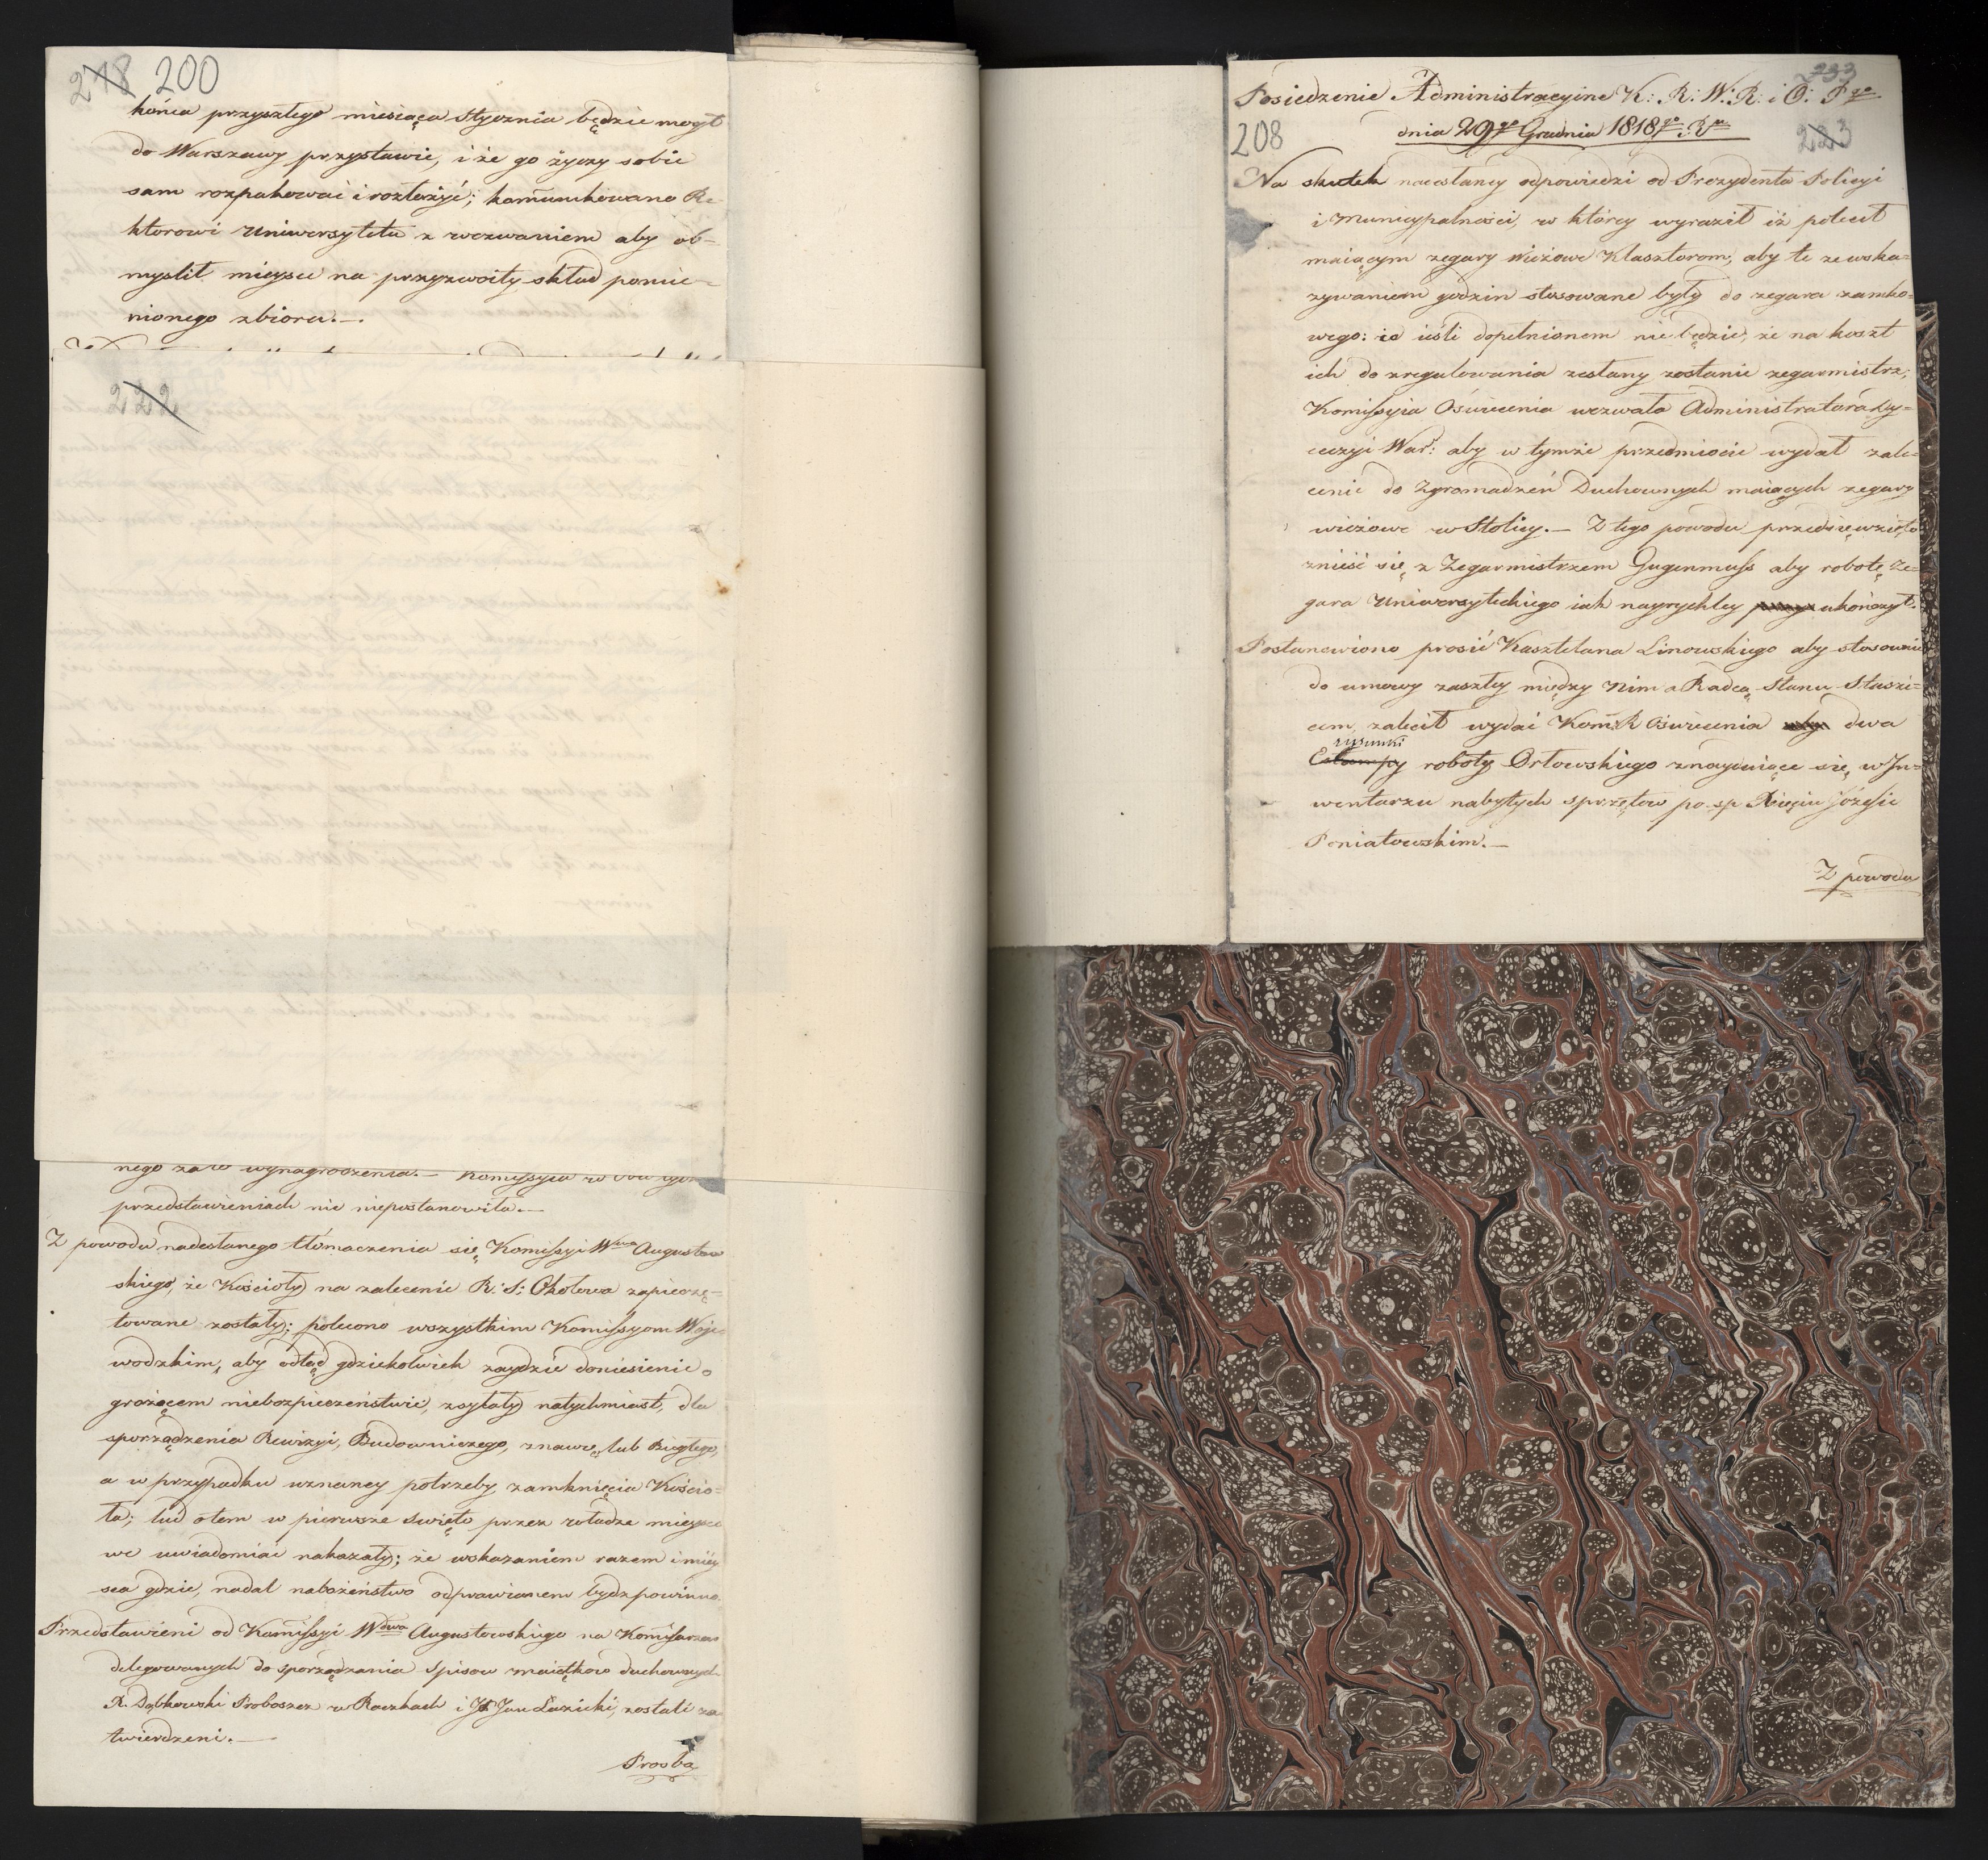 218 200
końca przyszłego miesiąca Stycznia będzie mógł
do Warszawy przystawić, i że go życzy sobie
sam rozpakować i rozłożyć; kommunikowano Re-
ktorowi Uniwersytetu z wezwaniem aby ob-
myślił mieysce na przyzwoity skład pomie-
nionego zbioru.—
222
nego za to wynagrodzenia.— Komissyia w
przedstawieniach nic niepostanowiła.—
Z powodu nadesłanego tłómaczenia się Komissyi Wwa Augustow
skiego, że Kościoły na zalecenie R. S: Okołowa zapieczę-
towane zostały; polecono wszystkim Komissyom Woje
wodzkim, aby odtąd gdziekolwiek zaydzie doniesienie o
grożącem niebezpieczeństwie, zsyłały natychmiast, dla
sporządzenia Rewizyi, Budowniczego, znawcę, lub Biegłego,
a w przypadku uznaney potrzeby zamknięcia Kościo-
ła; lud o tem w pierwsze święto przez władze mieysco
we uwiadomiać nakazały; ze wskazaniem razem i miey
sca gdzie, nadal nabożeństwo odprawianem bydź powinno.
Przedstawieni od Komissyi Wdwa Augustowskiego na Komisarzow
delegowanych do sporządzania spisow maiątkow duchownych
X. Dąbkowski Proboszcz w Raczkach i JP Jan Łazicki, zostali za
twierdzeni.—
Prośba
233
Posiedzenie Administracyine K: R: W: R: i O: Pgo
208 dnia 29go Grudnia 1818go Ru 223
Na skutek nadesłaney odpowiedzi od Prezydenta Policyi
i Municypalności, w którey wyraził iż polecił
maiącym zegary wieżowe Klasztorom, aby te ze wska-
zywaniem godzin stosowane były do zegara zamko-
wego: ie ieśli dopełnionem nie będzie, że na koszt
ich do uregulowania zesłany zostanie zegarmistrz;
Komissyia Oświecenia wezwała Administratora Dy-
ecezyi War: aby w tymże przedmiocie wydał zale-
cenie do Zgromadzeń Duchownych maiących zegary
wieżowe w Stolicy.— Z tego powodu przedsięwzięto
znieść się z Zegarmistrzem Gugenmuss aby robotę ze-
gara Uniwersyteckiego iak nayrychley ukończył.
Postanowiono prosić Kasztelana Linowskiego aby stosownie
do umowy zaszłey między Nim a Radcą Stanu Staszi-
cem, zalecił wydać Kom: R Oświecenia aby dwa
rysunki
Estampy roboty Orłowskiego znayduiące się w In-
wentarzu nabytych sprzętow po sp Xięciu Józefie
Poniatowskim.—
Z powodu